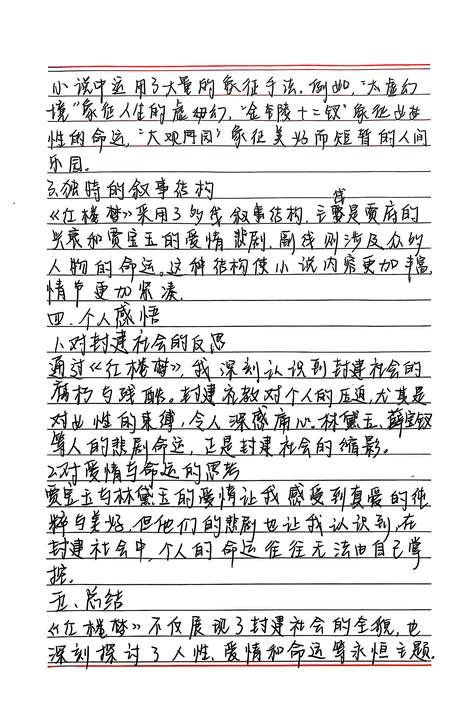 小说中运用了大量的象征手法.例如,“太虚幻
境”象征人生的虚幻,“金陵十二钗”象征女
性的命运,“大观园”象征美好而短暂的人间
乐园.
3.独特的叙事结构
《红楼梦》采用了多线叙事结构,主线是贾府的
兴衰和贾宝玉的爱情悲剧.副线则涉及众多
人物的命运。这种结构使小说内容更加丰富,
情节更加紧凑.
四.个人感悟
1.对封建社会的反思
通过《红楼梦》,我深刻认识到封建社会的
腐朽与残酷。封建礼教对个人的压迫,尤其是
对女性的束缚,令人深感痛心.林黛玉、薛宝钗
等人的悲剧命运,正是封建社会的缩影。
2.对爱情与命运的思考
贾宝玉与林黛玉的爱情让我感受到真爱的纯
粹与美好.但他们的悲剧也让我认识到,在
封建社会中,个人的命运往往无法由自己掌
控.
五、总结
《红楼梦》不仅展现了封建社会的全貌,也
深刻探讨了人性、爱情和命运等永恒主题.